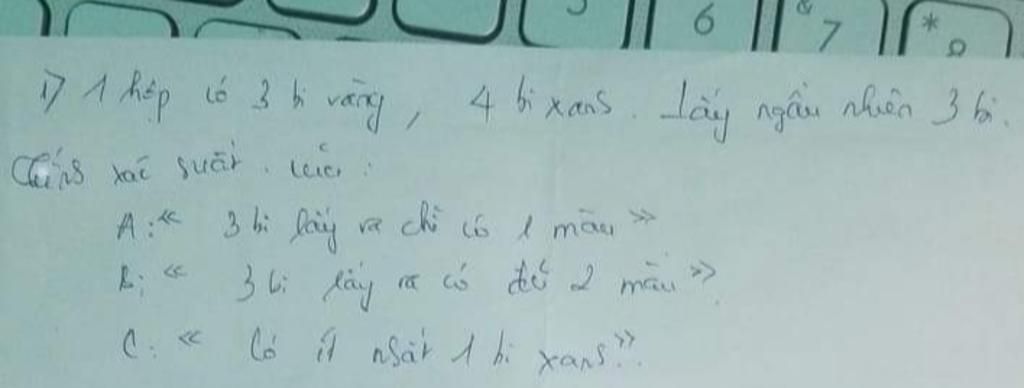 6 & 7 * 8
1) 1 hộp có 3 bi vàng, 4 bi xanh. Lấy ngẫu nhiên 3 bi.
Tính xác suất của:
A: « 3 bi lấy ra chỉ có 1 màu »
B: « 3 bi lấy ra có đủ 2 màu ».
C: « Có ít nhất 1 bi xanh ».